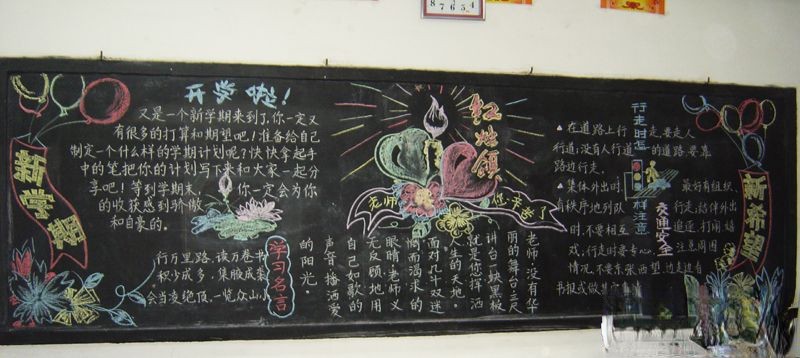 8 7 6 5 4
新学期
开学啦!
又是一个新学期来到了,你一定又
有很多的打算和期望吧!准备给自己
制定一个什么样的学期计划呢?快快拿起手
中的笔把你的计划写下来和大家一起分
享吧!等到学期末,你一定会为你
的收获感到骄傲
和自豪的。
学习名言
行万里路,读万卷书
积少成多,集腋成裘
会当凌绝顶,一览众山小
红烛颂
老师 你辛苦了
老师,没有华
丽的舞台,三尺
讲台一块黑板
就是你挥洒
人生的天地。
面对几十双迷
惘而渴求的
眼睛,老师义
无反顾地用
自己如歌的
声音播洒爱
的阳光。
行走时怎样注意交通安全
在道路上行走,要走人
行道;没有人行道的道路,要靠
路边行走。
集体外出时,最好有组织、
有秩序地列队行走;结伴外出
时,不要相互追逐、打闹、嬉
戏;行走时要专心,注意周围
情况,不要东张西望、边走边看
书报或做其它事情
新希望